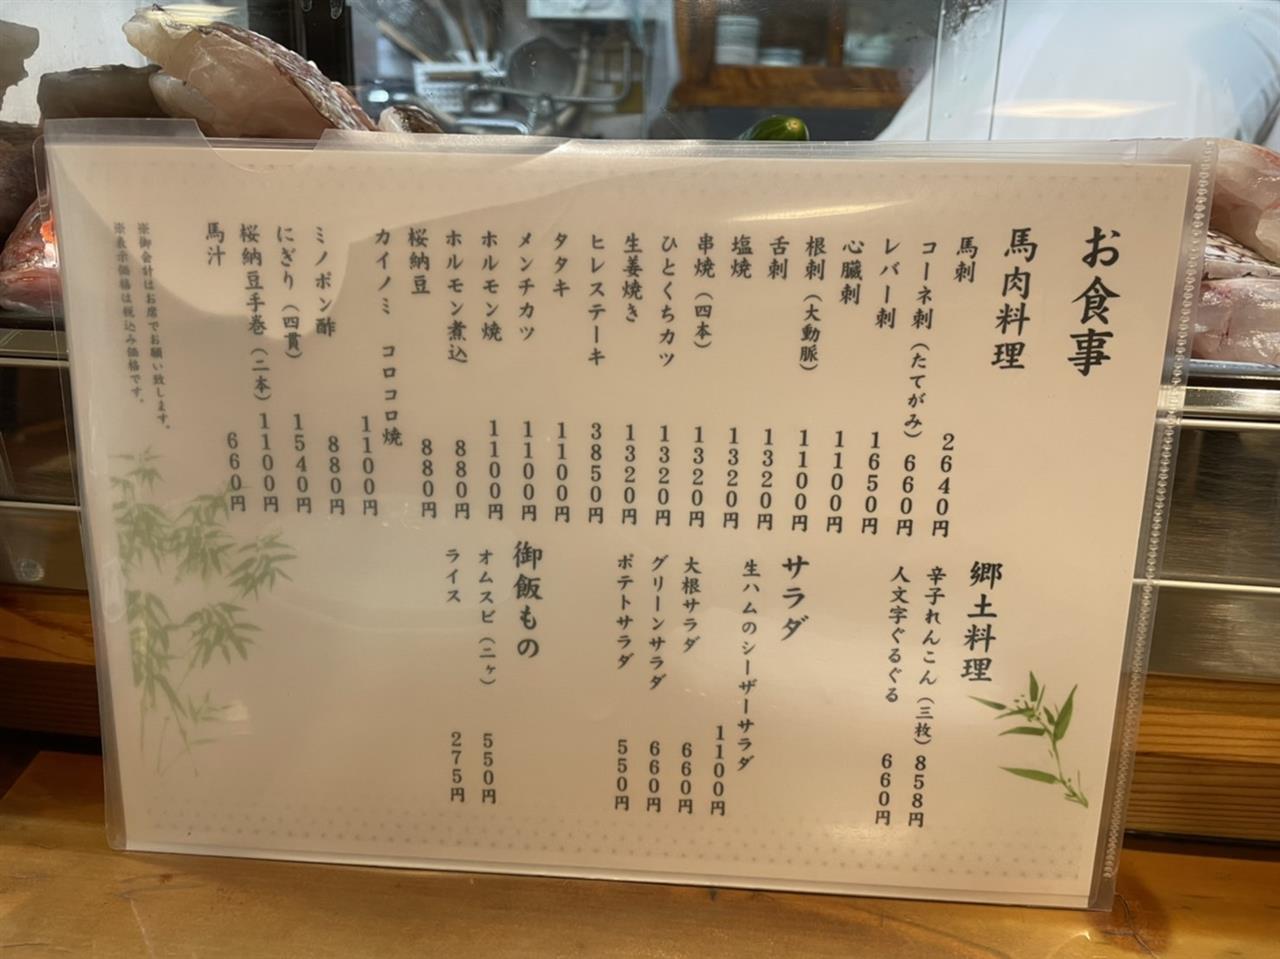 お食事
馬肉料理
馬刺 2640円
コーネ刺（たてがみ） 660円
レバー刺 1650円
心臓刺 1100円
根刺（大動脈） 1100円
舌刺 1320円
塩焼 1320円
串焼（四本） 1320円
ひとくちカツ 1320円
生姜焼き 1320円
ヒレステーキ 3850円
タタキ 1100円
メンチカツ 1100円
ホルモン焼 1100円
ホルモン煮込 880円
桜納豆 880円
カイノミ コロコロ焼 1100円
ミノポン酢 880円
にぎり（四貫） 1540円
桜納豆手巻（二本） 1100円
馬汁 660円
※御会計はお席でお願い致します。
※表示価格は税込み価格です。
郷土料理
辛子れんこん（三枚） 858円
人文字ぐるぐる 660円
サラダ
生ハムのシーザーサラダ 1100円
大根サラダ 660円
グリーンサラダ 660円
ポテトサラダ 550円
御飯もの
オムスビ（二ヶ） 550円
ライス 275円